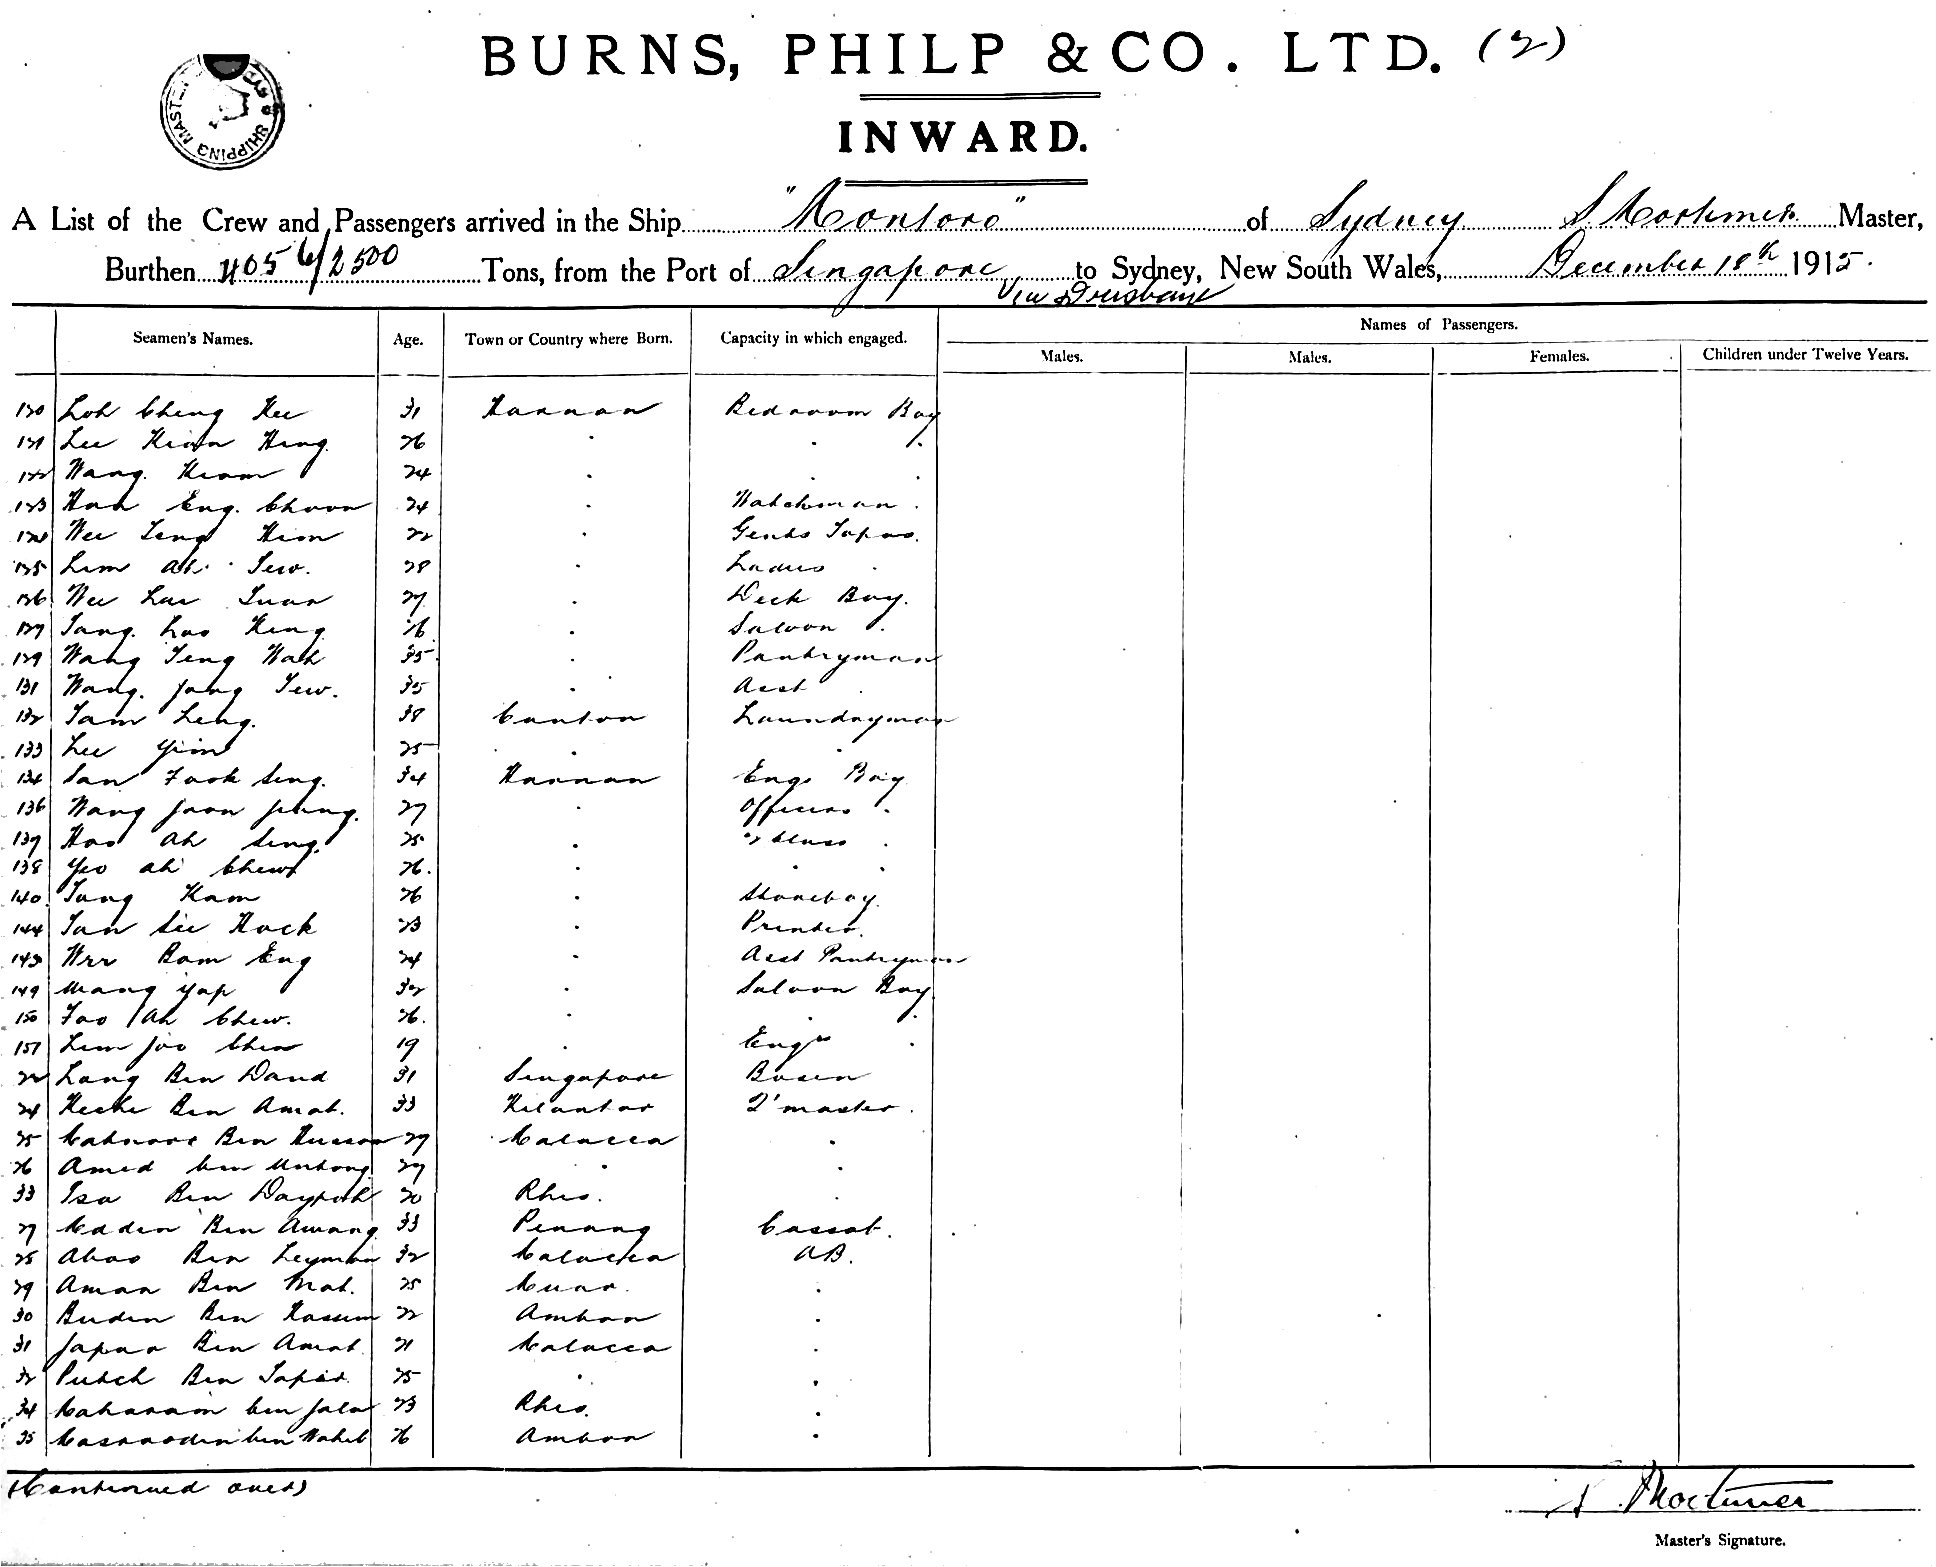 BURNS, PHILP & CO. LTD. (2)
SHIPPING MASTER
INWARD.
A List of the Crew and Passengers arrived in the Ship "Montoro" of Sydney S. Mortimer Master,
Burthen 4056/2500 Tons, from the Port of Singapore to Sydney, New South Wales, December 18th 1915.
Via Brisbane
Names of Passengers.
Seamen's Names. Age. Town or Country where Born. Capacity in which engaged. Males. Males. Females. Children under Twelve Years.
120 Loh Cheng Kee 31 Hannan Bedroom Boy
121 Lee Kian Heng 26 . . .
122 Wang. Kiam 24 . . .
123 Han Eng. Choon 24 . Watchman .
124 Wee Teng Kim 22 . Gents Topas.
125 Lim Ah. Tew. 28 . Ladies .
126 Wee Lui Tuan 27 . Deck Boy.
127 Tang. Lao Keng 26. . Saloon .
129 Wang Teng Wah 35. . Pantryman
131 Wang. Jong Tew. 35 . Asst .
132 Tam Leng. 38 Canton Laundryman
133 Lee Yim 25 . .
134 San Fook Seng. 34 Hannan Engs Boy
136 Wang Joon 27 . Officers .
137 Hoo Ah Seng. 25 . 2 Class .
138 Yeo Ah Chew 26. . . .
140. Tang Kam 26 . Storeboy.
144 Tan See Hock 23 . Printer.
145 Bom Eng 24 . Asst Pantryman
149 Wang Yap 32 . Saloon Boy
150 Foo Ah Chew. 26. . . .
151 Lim Joo Chin 19 . Engrs .
22 Lang Ben Daud 31 Singapore Bosen
24 Ben Amat. 33 Kelantan Q'master.
25 Ben Hussan 27 Malacca .
26 Amed ben Untong 27 . .
33 Isa Ben 20 Rhio. .
27 Madin Ben Awang 33 Penang Cassab.
28 Abas Ben Leyman 32 Malacca AB.
29 Aman Ben Mat. 25 Muar. .
30 Budin Ben Kassim 22 Ambon .
31 Japar Ben Amat 21 Malacca .
32 Puteh Ben 25 . .
34 Maharam ben Jala 23 Rhio. .
35 ben Wahib 26 Ambon .
(Continued over)
S. Mortimer
Master's Signature.